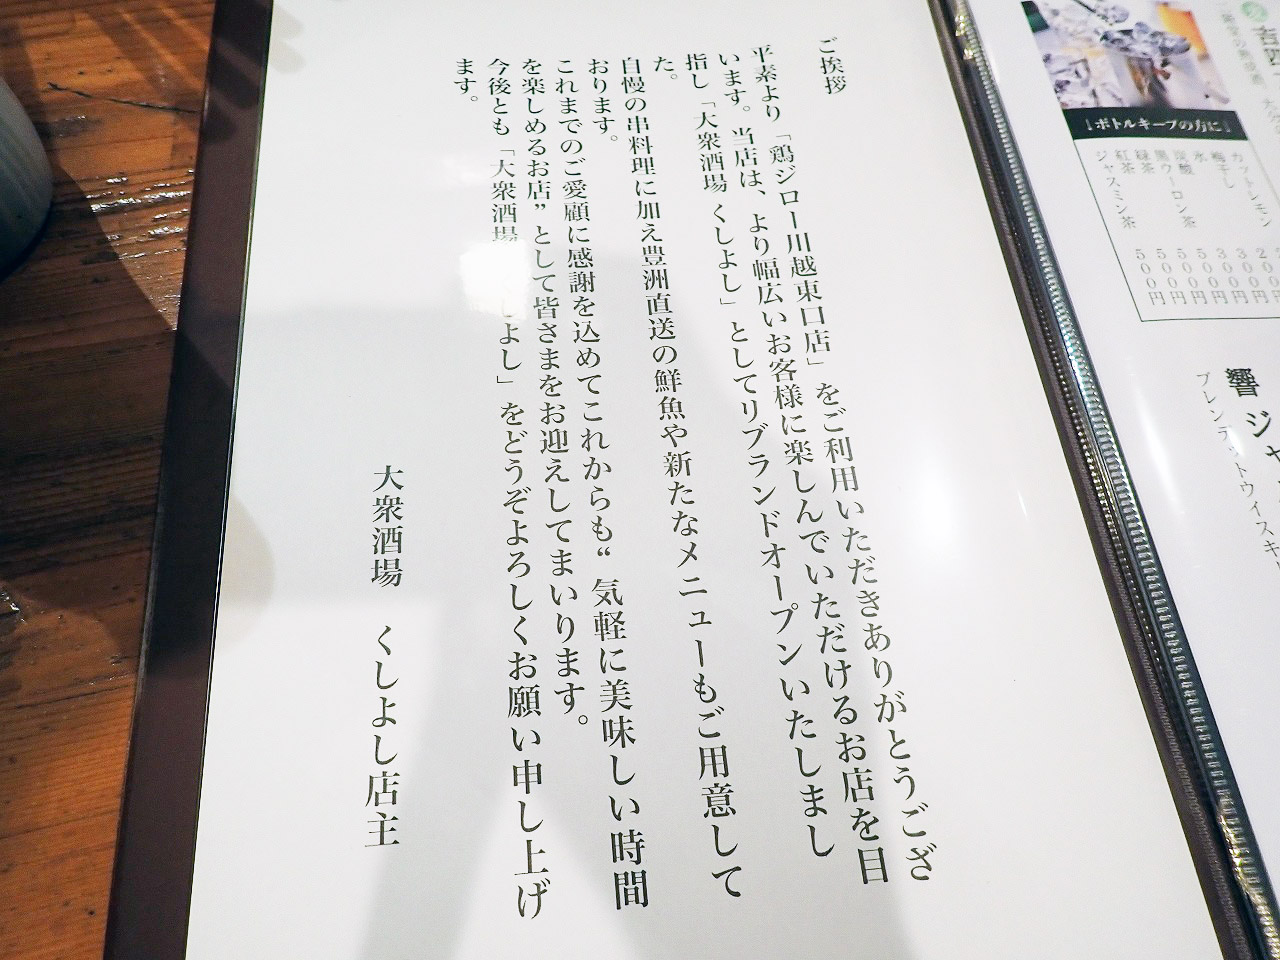 ご挨拶
平素より「鶏ジロー川越東口店」をご利用いただきありがとうござ
います。当店は、より幅広いお客様に楽しんでいただけるお店を目
指し「大衆酒場 くしよし」としてリブランドオープンいたしまし
た。
自慢の串料理に加え豊洲直送の鮮魚や新たなメニューもご用意して
おります。
これまでのご愛顧に感謝を込めてこれからも“気軽に美味しい時間
を楽しめるお店”として皆さまをお迎えしてまいります。
今後とも「大衆酒場 しよし」をどうぞよろしくお願い申し上げ
ます。
大衆酒場 くしよし店主
ボトルキープの方に
カットレモン
梅干し 300円
氷 300円
炭酸 500円
黒ウーロン茶 500円
緑茶 500円
紅茶
ジャスミン茶 500円
響 ジャ
ブレンデットウイスキー